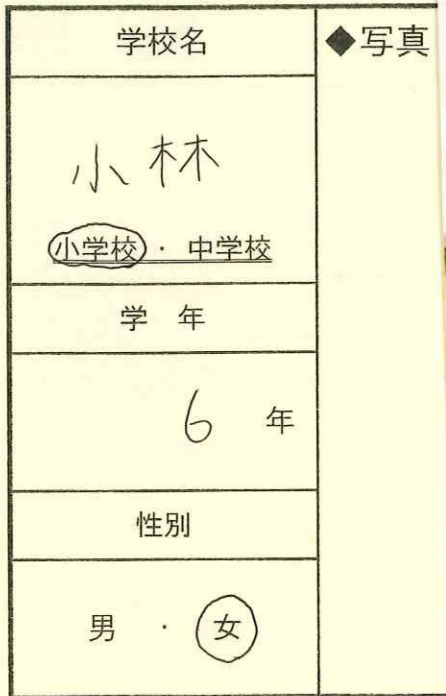 学校名
◆写真
小林
小学校 ・ 中学校
学 年
6 年
性別
男 ・ 女